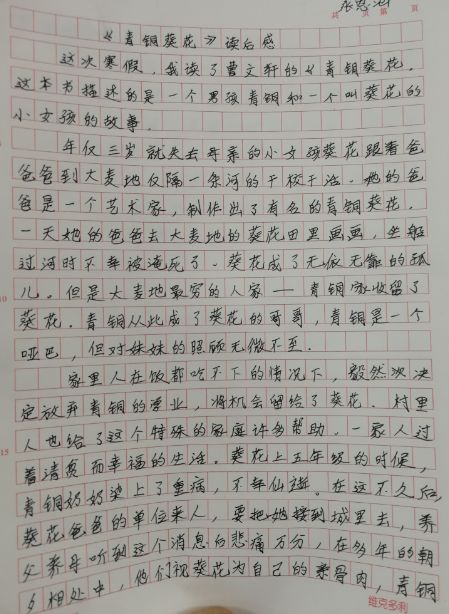 张思涵
共 页 第 页
《青铜葵花》读后感
这次寒假，我读了曹文轩的《青铜葵花。
这本书描述的是一个男孩青铜和一个叫葵花的
小女孩的故事.
年仅三岁就失去母亲的小女孩葵花跟着爸
爸到大麦地仅隔一条河的干校干活.她的爸
爸是一个艺术家，制作出了有名的青铜葵花.
一天她的爸爸去大麦地的葵花田里画画，坐船
过河时不幸被淹死了.葵花成了无依无靠的孤
儿.但是大麦地最穷的人家——青铜家收留了
葵花.青铜从此成了葵花的哥哥，青铜是一个
哑巴，但对妹妹的照顾无微不至.
家里人在饭都吃不下的情况下，毅然决
定放弃青铜的学业，将机会留给了葵花.村里
人也给了这个特殊的家庭许多帮助.一家人过
着清贫而幸福的生活.葵花上五年级的时候，
青铜奶奶染上了重病，不幸仙逝。在这不久后，
葵花爸爸的单位来人，要把她接到城里去，养
父养母听到这个消息后悲痛万分，在多年的朝
夕相处中，他们视葵花为自己的亲骨肉，青铜
10
15
维克多利